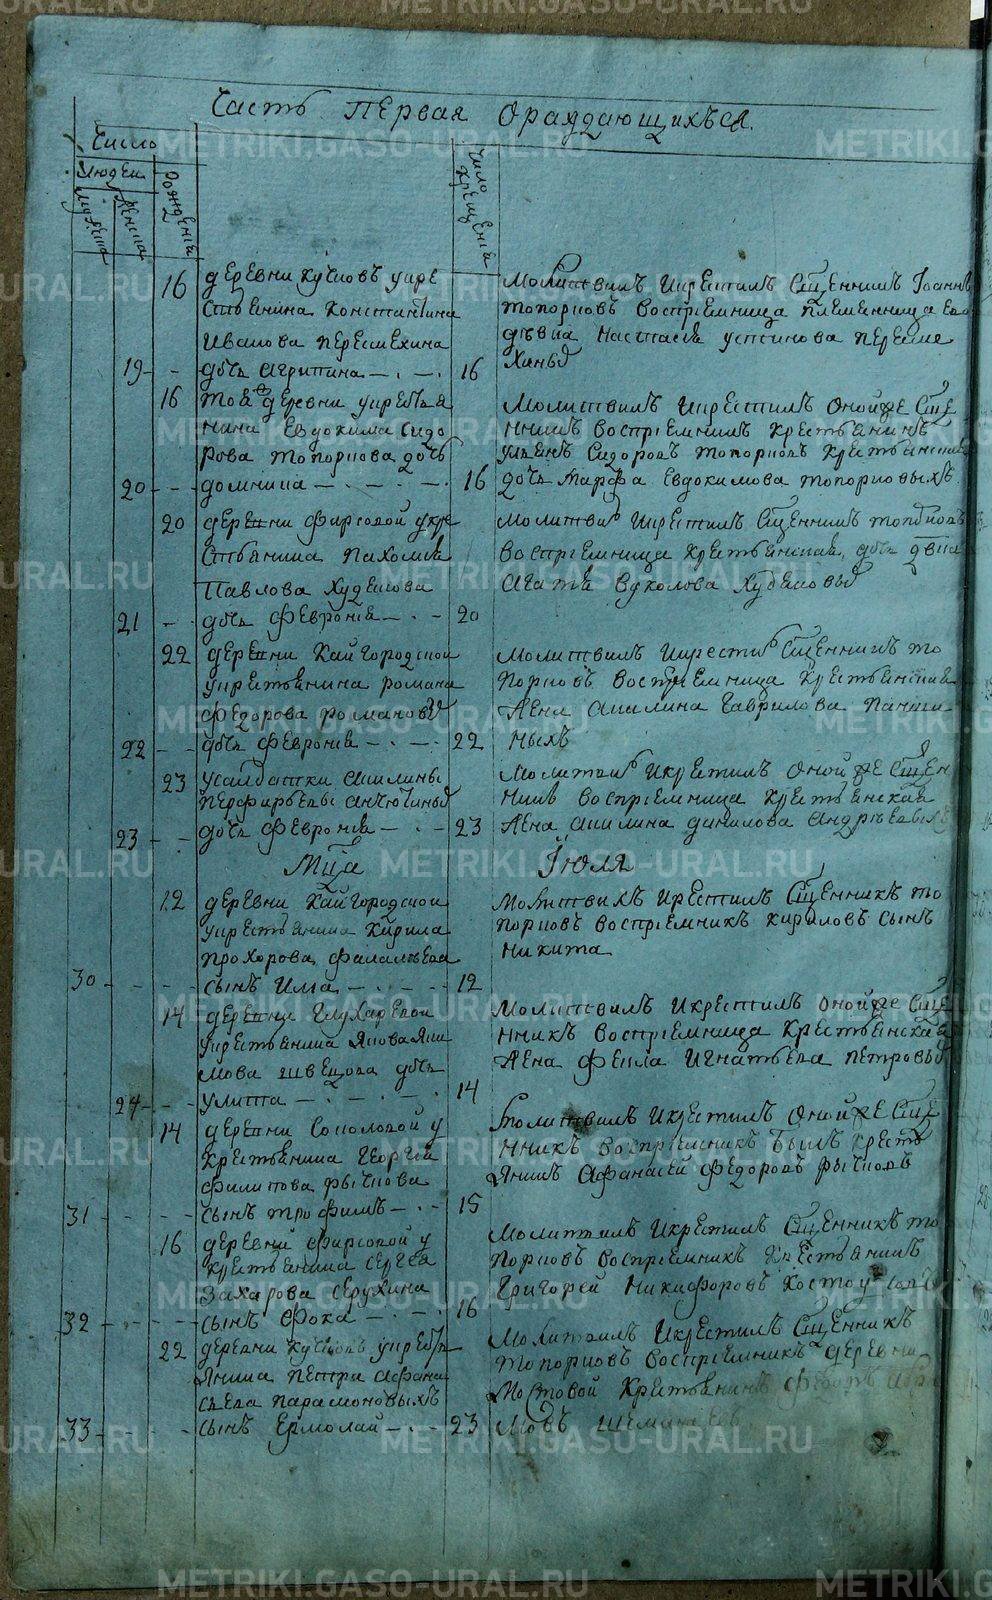 Часть первая ораждающихъся
Число
Людей
мужеска
женска
рождения
число крещения
16 деревни Кучковъ укре
стьянина Константина
Иванова Пересмехина
19 - - дочь Агрипина - . - . 16
Молитвилъ икрестилъ Сщенникъ Иоаннъ
Топорковъ восприемница племенница Ево
девка Настасья Устинова Пересме
ханы
16 тоя деревни укресть
нина Евдокима Сидо
рова Топоркова дочь
20 - - Домника - . - . - . 16
Молитвилъ икрестилъ онойже Сще
нникъ восприемникъ крестьянинъ
Сидоровъ Топорковъ крестьянска
дочь Марфа Евдокимова Топорковыхъ
20 деревни Фирсовой укре
стьянина Пахома
Павлова Худякова
21 - - дочь Феврония - . - 20
Молитви икрестилъ Сщенникъ Топорковъ
восприемница крестьянская дочь
Агатья Вуколова
22 деревни Кайгородской
укрестьянина Романа
Федорова Романовы
22 - - дочь Феврония - . - . 22
Молитвилъ икрести Сщенникъ То
порковъ восприемница крестьянская
жена Акилина Гаврилова Панши
ныхъ
23 усалдатки Акилины
Перфирьевы
23 - - дочь Феврония - . - 23
Молитви икрестилъ онойже Сщен
никъ восприемница крестьянская
жена Акилина Данилова Андреевы
Мца Июля
12 деревни Кайгородской
укрестьянина Кирила
Прохорова
30 - - - сынъ Илья - . - . - 12
Молитвилъ икрестилъ Сщенникъ То
порковъ восприемникъ Кириловъ сынъ
Никита
14 деревни Глухаревой
укрестьянина Якова Яки
мова Швецова дочь
24 - - - Улита - . - . - 14
Молитвилъ икрестилъ онойже Сще
нникъ восприемница крестьянска
жена Фекла Игнатьева Петровы
14 деревни Соколовой у
крестьянина Георгия
Филипова Рычкова
31 - - - сынъ Трофимъ - . - 15
Молитвилъ икрестилъ онойже Сще
нникъ восприемникъ былъ кресть
янинъ Афанасей Федоровъ Рычковъ
16 деревни Фирсовой у
крестьянина Сергея
Захарова Серухина
32 - - - - сынъ Фока - . - . 16
Молитвилъ икрестилъ Сщенникъ То
порковъ восприемникъ крестьянинъ
Григорей Никифоровъ
22 деревни Кучковъ укресть
янина Петра Афана
сьева Парамоновыхъ
33 - - - - сынъ Ермолай - . - 23
Молитвилъ икрестилъ Сщенникъ
Топорковъ восприемникъ деревни
Мостовой крестьянинъ
мовъ
METRIKI.GASO-URAL.RU